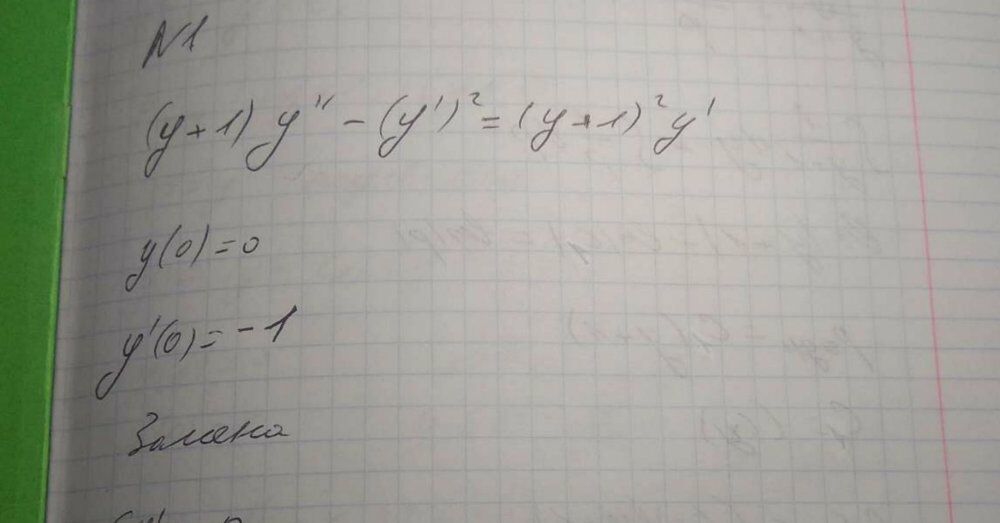 N1
(y+1) y'' - (y')² = (y+1)² y'
y(0)=0
y'(0)=-1
Замена